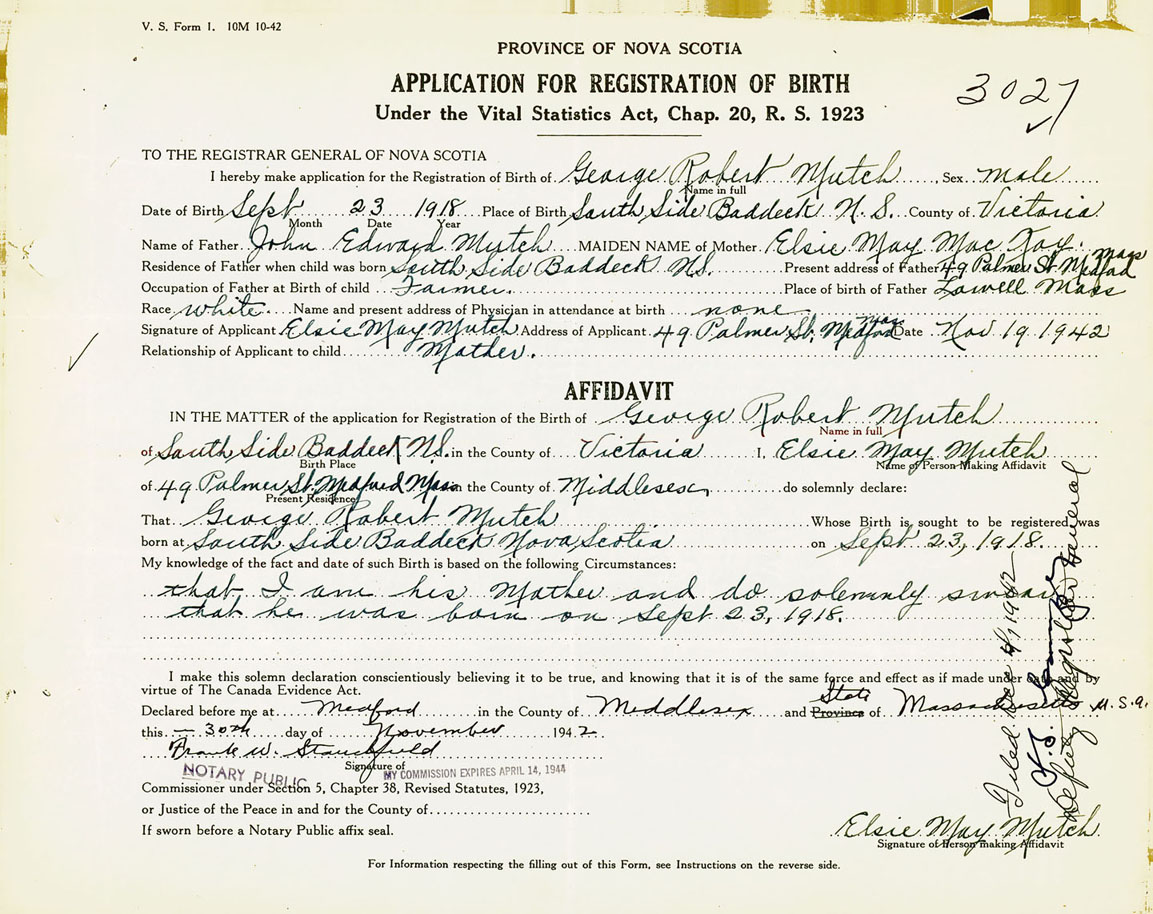 V. S. Form 1. 10M 10-42
PROVINCE OF NOVA SCOTIA
APPLICATION FOR REGISTRATION OF BIRTH
3027
Under the Vital Statistics Act, Chap. 20, R. S. 1923
TO THE REGISTRAR GENERAL OF NOVA SCOTIA
I hereby make application for the Registration of Birth of George Robert Mutch Sex male
Name in full
Date of Birth Sept 23 1918 Place of Birth South Side Baddeck N.S. County of Victoria
Month Date Year
Name of Father John Edward Mutch MAIDEN NAME of Mother Elsie May Mac Kay.
Residence of Father when child was born South Side Baddeck N.S. Present address of Father 49 Palmer St. Medford Mass
Occupation of Father at Birth of child Farmer. Place of birth of Father Lowell Mass
Race white Name and present address of Physician in attendance at birth none
Signature of Applicant Elsie May Mutch Address of Applicant 49 Palmer St. Medford Mass Date Nov 19 1942
Relationship of Applicant to child Mother.
AFFIDAVIT
IN THE MATTER of the application for Registration of the Birth of George Robert Mutch
Name in full
of South Side Baddeck N.S. in the County of Victoria I, Elsie May Mutch
Birth Place Name of Person Making Affidavit
of 49 Palmer St. Medford Mass in the County of Middlesex do solemnly declare:
Present Residence
That George Robert Mutch Whose Birth is sought to be registered was
born at South Side Baddeck Nova Scotia on Sept 23, 1918.
My knowledge of the fact and date of such Birth is based on the following Circumstances:
that I am his Mother and do solemnly swear
that he was born on Sept 23, 1918.
I make this solemn declaration conscientiously believing it to be true, and knowing that it is of the same force and effect as if made under oath and by
virtue of The Canada Evidence Act.
State
Declared before me at Medford in the County of Middlesex and Province of Massachusetts U.S.A.
this 30th day of November 1942.
Frank W. Stanchfield
Signature of
NOTARY PUBLIC MY COMMISSION EXPIRES APRIL 14, 1944
Commissioner under Section 5, Chapter 38, Revised Statutes, 1923,
or Justice of the Peace in and for the County of
If sworn before a Notary Public affix seal.
Elsie May Mutch
Signature of Person making Affidavit
For Information respecting the filling out of this Form, see Instructions on the reverse side.
Filed Dec 1942
Deputy Registrar General